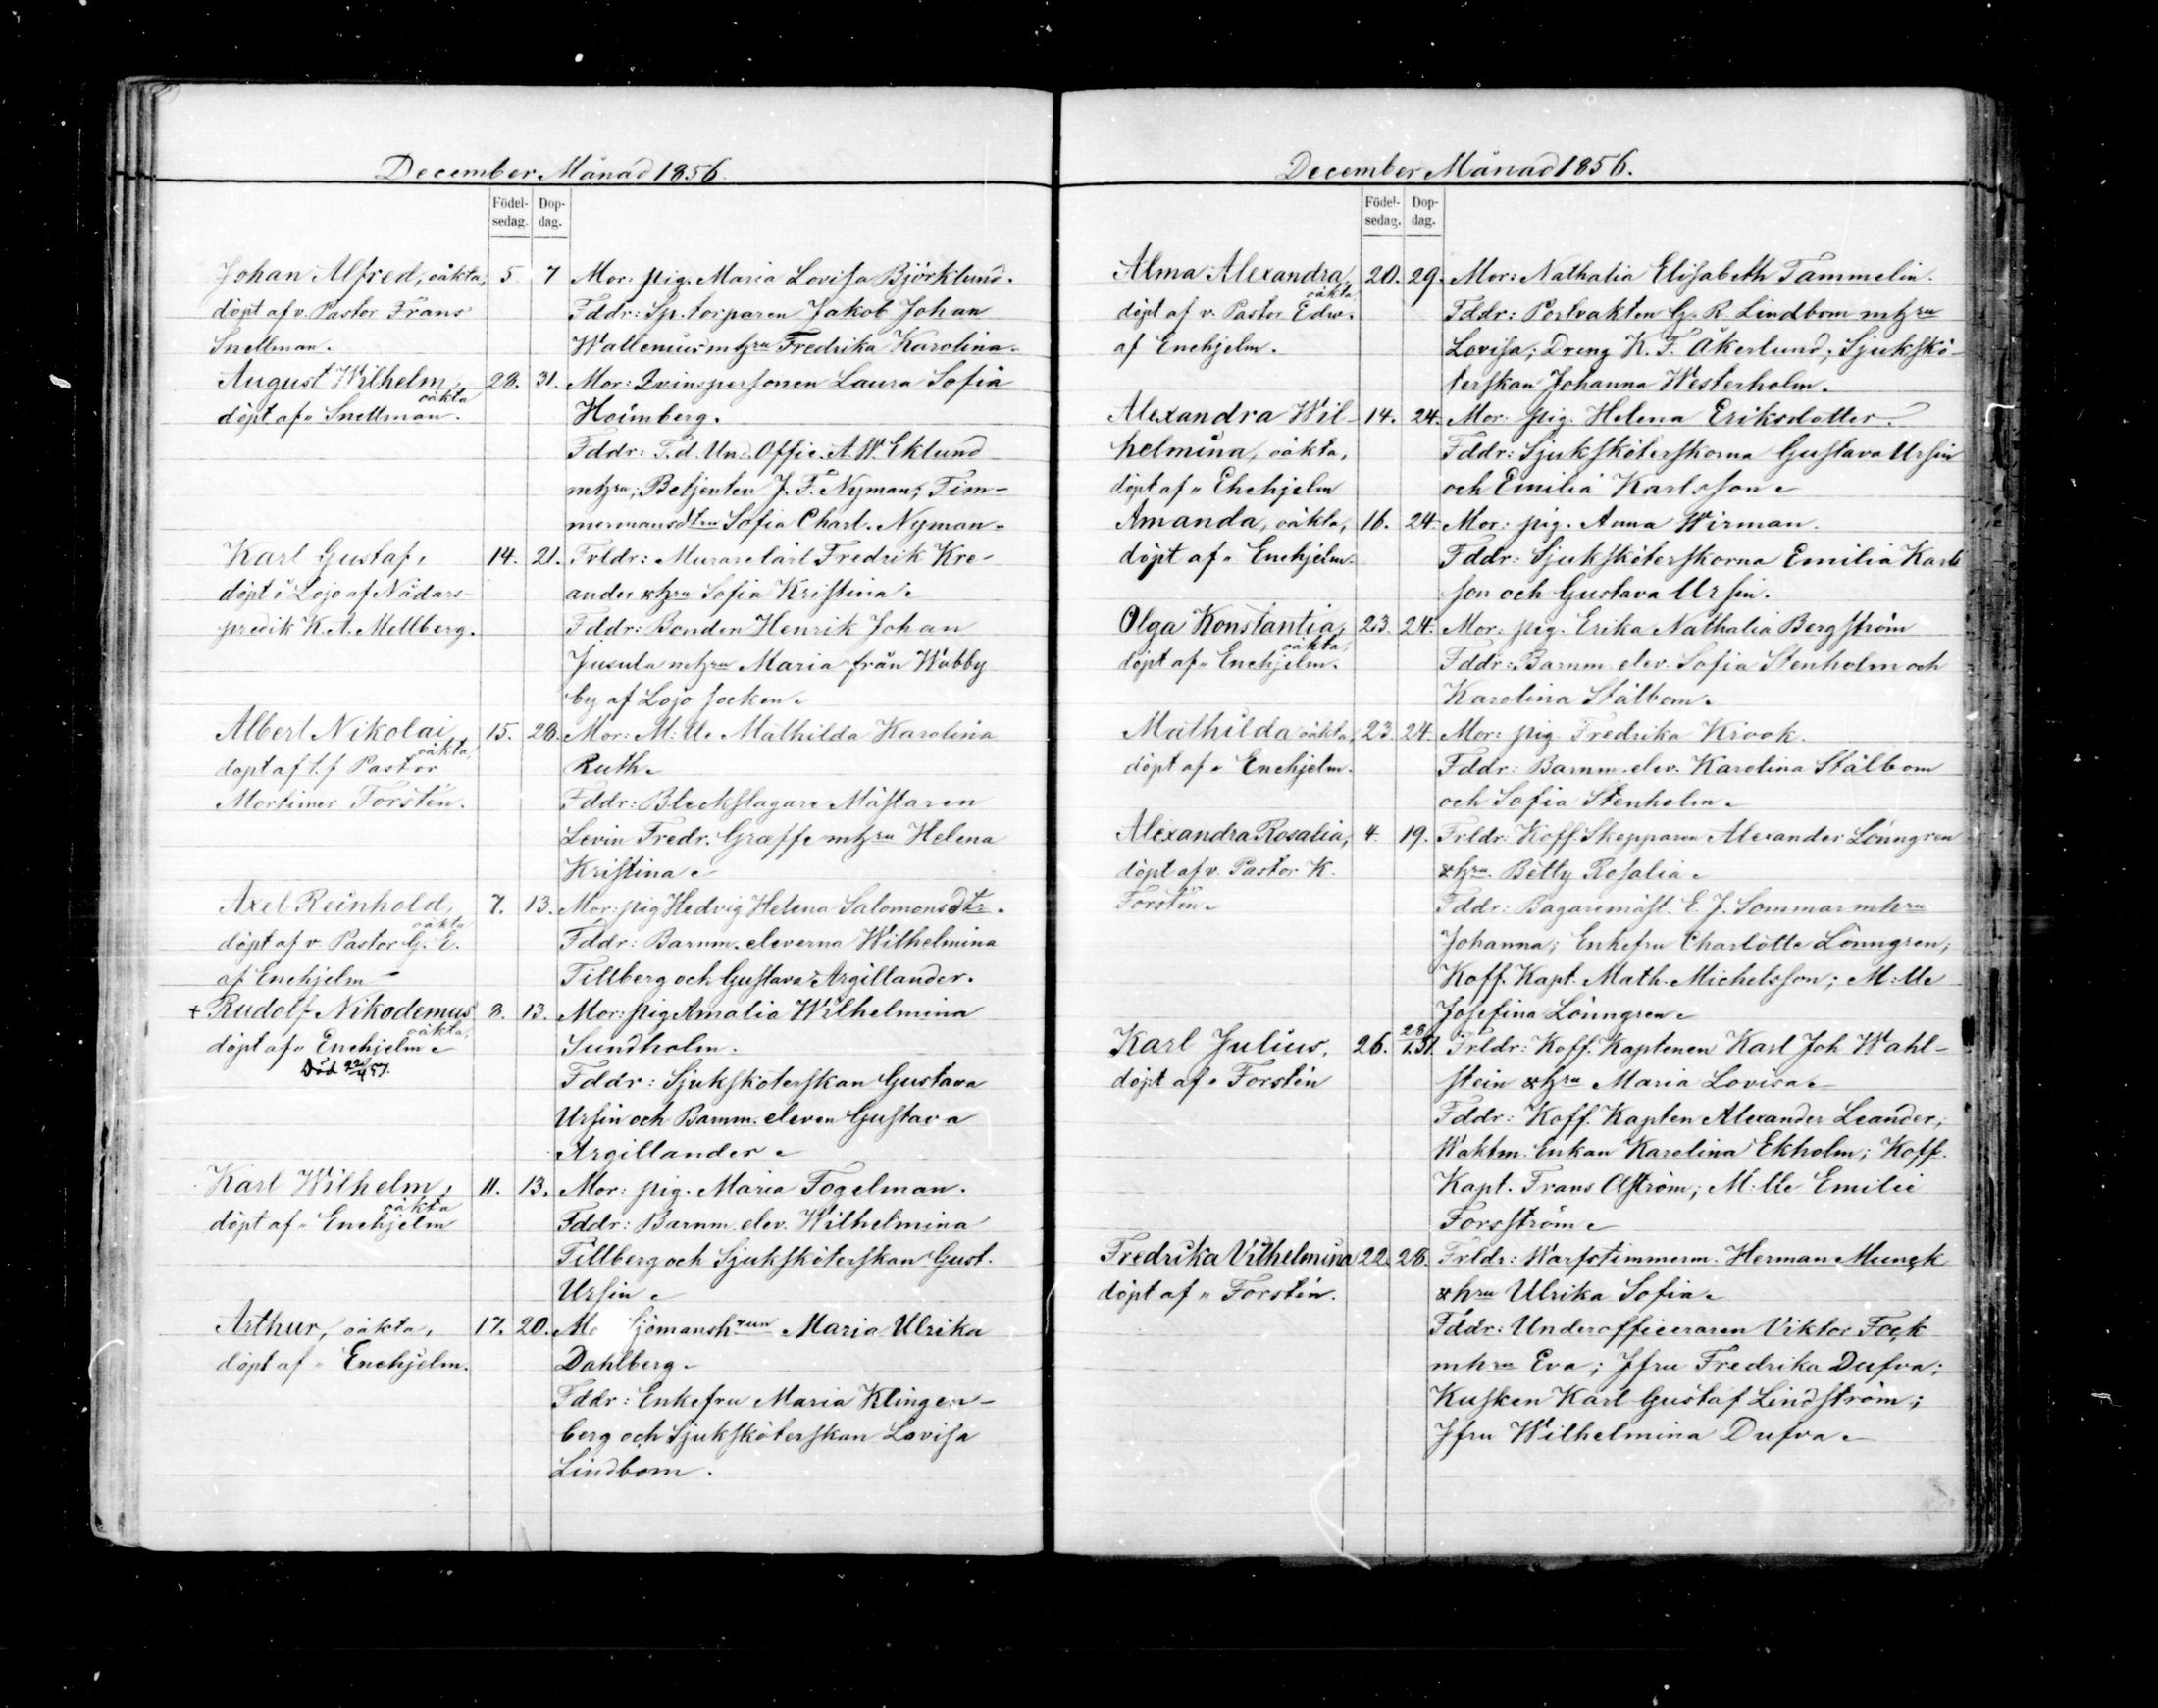 December Månad 1856.
Födel-
sedag.
Dop-
dag.
Johan Alfred, oäkta, 5. 7 Mor: pig. Maria Lovisa Björklund.
döpt af v. Pastor Frans Fddr: Sp. torparen Jakob Johan
Snellman. Wallenius m hru Fredrika Karolina.
August Wilhelm, oäkta 28. 31. Mor: Qvinspersonen Laura Sofia
döpt af " Snellman. Hoimberg.
Fddr: T.d. Und. Offic. A. W. Eklund
m hru; Betjenten J. F. Nyman; Tim-
mermansdtrn Sofia Charl. Nyman.
Karl Gustaf, 14. 21. Frldr: Murarelärl Fredrik Kre-
döpt i Lojo af Nådårs- ander & hru Sofia Kristina.
predik K. A. Mellberg. Fddr: Bonden Henrik Johan
Jusula m hru Maria från Wabby
by af Lojo socken.
Albert Nikolai, oäkta, 15. 28. Mor: M:lle Mathilda Karolina
döpt af t.f Pastor Ruth.
Mortimer Forstén. Fddr: Bleckslagare Mästaren
Levin Fredr. Græffe m hru Helena
Kristina.
Axel Reinhold, oäkta 7. 13. Mor: pig Hedvig Helena Salomonsdtr.
döpt af v. Pastor G. E. Fddr: Barnm. eleverna Wilhelmina
af Enehjelm Tillberg och Gustava Argillander.
+ Rudolf Nikodemus oäkta, 8. 13. Mor: pig Amalia Wilhelmina
döpt af " Enehjelm Sundholm.
Död 22/4 57. Fddr: Sjuksköterskan Gustava
Ursin och Barnm. eleven Gustava
Argillander.
Karl Wilhelm, oäkta 11. 13. Mor: pig. Maria Fogelman.
döpt af " Enehjelm Fddr: Barnm. elev. Wilhelmina
Tillberg och Sjuksköterskan Gust.
Ursin.
Arthur, oäkta, 17. 20. Mo Sjömanshrun Maria Ulrika
döpt af " Enehjelm. Dahlberg.
Fddr: Enkefru Maria Klingen-
berg och Sjuksköterskan Lovisa
Lindbom.
December Månad 1856.
Födel-
sedag.
Dop-
dag.
Alma Alexandra, oäkta, 20. 29. Mor: Nathalia Elisabeth Tammelin.
döpt af v. Pastor Edw. Fddr: Portvakten G. R. Lindbom m hru
af Enehjelm. Lovisa; Dreng K. F. Åkerlund; Sjukskö-
terskan Johanna Westerholm.
Alexandra Wil- 14. 24. Mor: pig. Helena Eriksdotter.
helmina, oäkta, Fddr: Sjuksköterskorna Gustava Ursin
döpt af " Enehjelm och Emilia Karlsson.
Amanda, oäkta, 16. 24. Mor: pig. Anna Wirman.
döpt af " Enehjelm. Fddr: Sjuksköterskorna Emilia Karls
son och Gustava Ursin.
Olga Konstantia, oäkta, 23. 24. Mor: pig. Erika Nathalia Bergström
döpt af " Enehjelm. Fddr: Barnm. elev. Sofia Stenholm och
Karolina Stålbom.
Mathilda oäkta, 23. 24. Mor: pig. Fredrika Krook.
döpt af " Enehjelm. Fddr: Barnm. elev. Karolina Stålbom
och Sofia Stenholm.
Alexandra Rosalia, 4. 19. Frldr: Koff. Skepparen Alexander Lönngren
döpt af v. Pastor K. & hru. Betty Rosalia.
Forstén. Fddr: Bagaremäst. E. J. Sommar m hru
Johanna; Enkefru Charlotte Lönngren;
Koff. Kapt. Math. Michelsson; M:lle
Josefina Lönngren.
Karl Julius, 26. 28 Frldr: Koff. Kaptenen Karl Joh Wahl-
döpt af " Forstén stein & hru Maria Lovisa.
Fddr: Koff. Kapten Alexander Leander;
Waktm. Enkan Karolina Ekholm; Koff.
Kapt. Frans Åström; M:lle Emilie
Forsström.
Fredrika Vilhelmina 22. 28. Frldr: Warfstimmerm. Herman Munck
döpt af " Forstén. & hru Ulrika Sofia.
Fddr: Underofficeraren Viktor Fock
m hru Eva; Jfru Fredrika Dufva;
Kusken Karl Gustaf Lindström;
Jfru Wilhelmina Dufva.